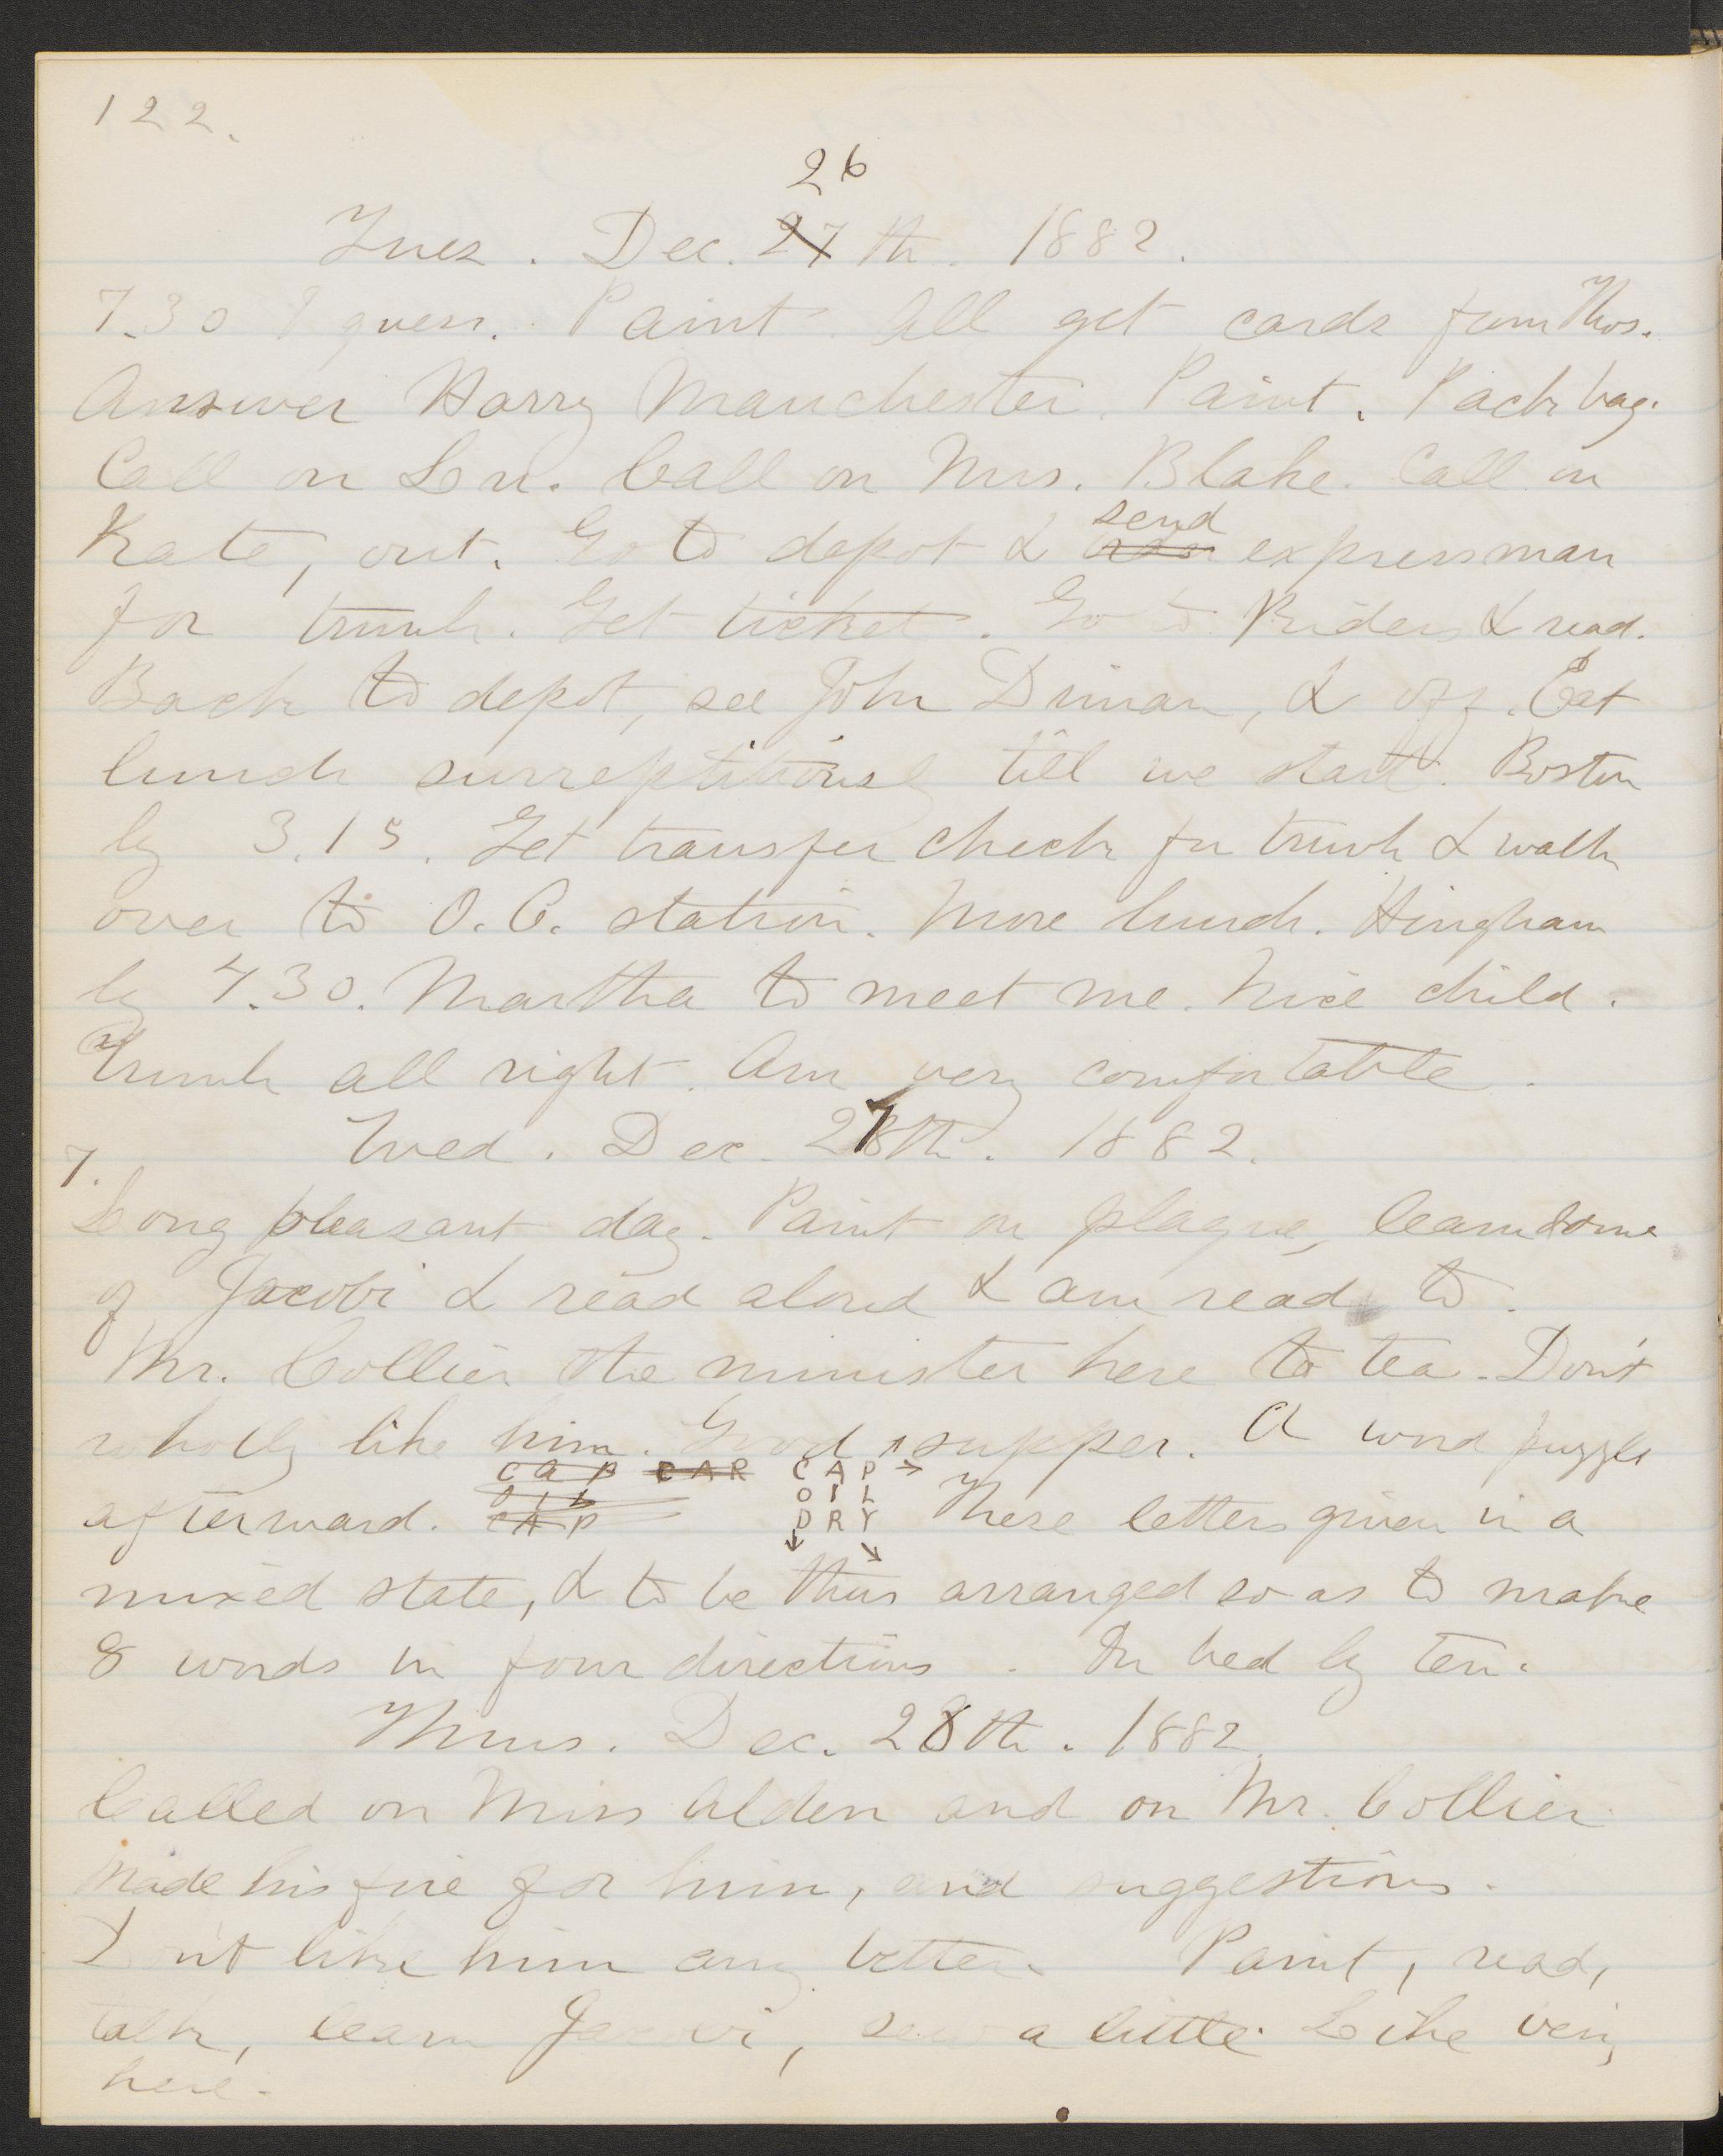 122.
26
Tues. Dec. 27th. 1882.
7.30 I guess. Paint. All get cards from Thos.
Answer Harry Manchester. Paint. Pack bag.
Call on Lu. Call on Mrs. Blake. Call on
Kate, out. Go to depot & send expressman
for trunk. Get ticket. Go to Riders & read.
Back to depot, see John Diman, & off. Eat
lunch surreptitiously till we start. Boston
by 3.15. Get transfer check for trunk & walk
over to O. C. station. More lunch. Hingham
by 4.30. Martha to meet me. Nice child.
Trunk all right. Am very comfortable.
Wed. Dec. 27th. 1882.
7.
Long pleasant day. Paint on plaque, learn some
of Jacobi & read aloud & am read to.
Mr. Collier the minister here to tea. Don't
wholly like him. Good supper. A word puzzle
CAP CAR CAP →
OIL OIL
afterward. CAP DRY These letters given in a
↓ ↘
mixed state, & to be thus arranged so as to make
8 words in four directions. In bed by ten.
Thurs. Dec. 28th. 1882.
Called on Miss Alden and on Mr. Collier.
Made his fire for him, and suggestions.
Don't like him any better. Paint, read,
talk, learn Jacobi, sew a little. Like being
here.